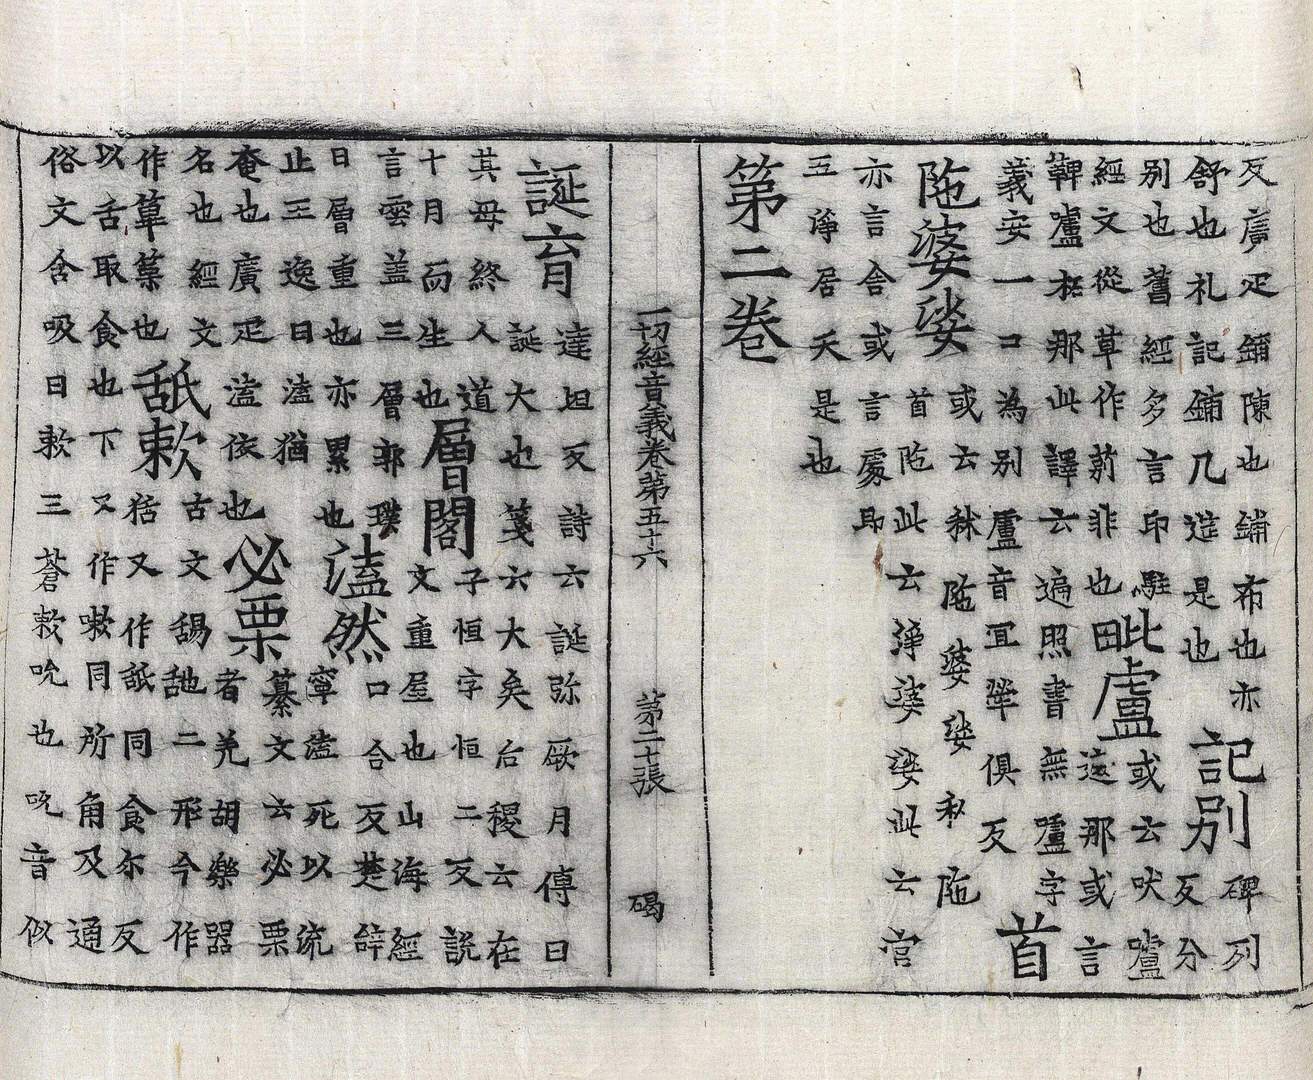 反廣疋鋪陳也鋪布也亦
舒也礼記鋪几筵是也
記別
碑列
反分
別也舊經多言印駐
經文從草作莂非也
毗盧
或云吠嚧
遮那或言
鞞嚧柘那此譯云遍照書無嚧字
義安一口為別盧音冝犖俱反
首
陁婆娑
或云秫陁婆娑私陁
首陁此云淨婆婆此云宫
亦言舍或言處即
五淨居天是也
第二卷
一切經音義卷第五十六 第二十張 碣
誕育
達坦反詩云誕弥厥月傳曰
誕大也箋云大矣后稷云在
其母終人道
十月而生也
層閣
子恒字恒二反說
文重屋也山海經
言雲盖三層郭璞
曰層重也亦累也
溘然
口合反楚辝
寧溘死以流
止王逸曰溘猶
奄也廣疋溘依也
必栗
纂文云必栗
者羌胡樂器
名也經文
作篳篥也
舐欶
古文舓𦧇二形今作
狧又作䑛同食尒反
以舌取食也下又作嗽同所角反通
俗文含吸曰欶三蒼欶吮也吮音似